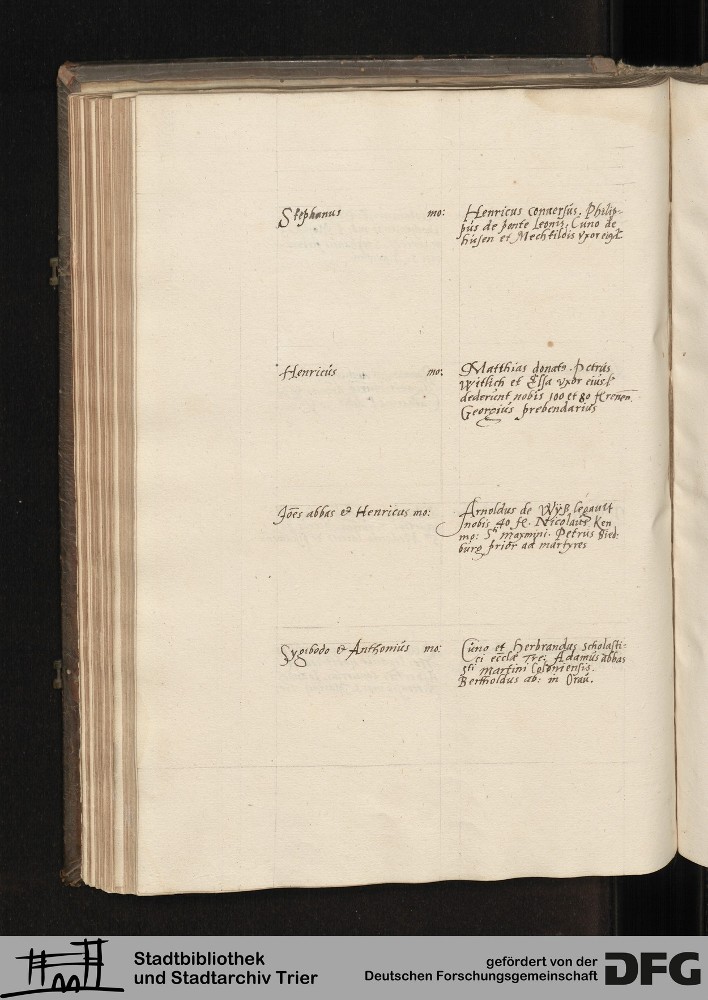 Stephanus mo: Henricus conuersus. Philip-
pus de ponte Leonis. Cuno de
husen et Mechtildis vxor eius
Henricus mo: Matthias donatꝰ. Petrus
Witlich et Elsa vxor eius
dederunt nobis 100 et 80 fl
Georgius prebendarius
Joēs abbas et Henricus mo: Arnoldus de Wyß legauit
nobis 40 fl. Nicolaus Ken
mo: Sti maxmini. Petrus Sied-
burg prior ad martyres
Sygibodo et Anthonius mo: Cuno et Herbrandus scholasti-
ci eccłæ Tre: Adamus abbas
sti martini Coloniensis.
Bertholdus ab: in
Stadtbibliothek
und Stadtarchiv Trier
gefördert von der
Deutschen Forschungsgemeinschaft
DFG